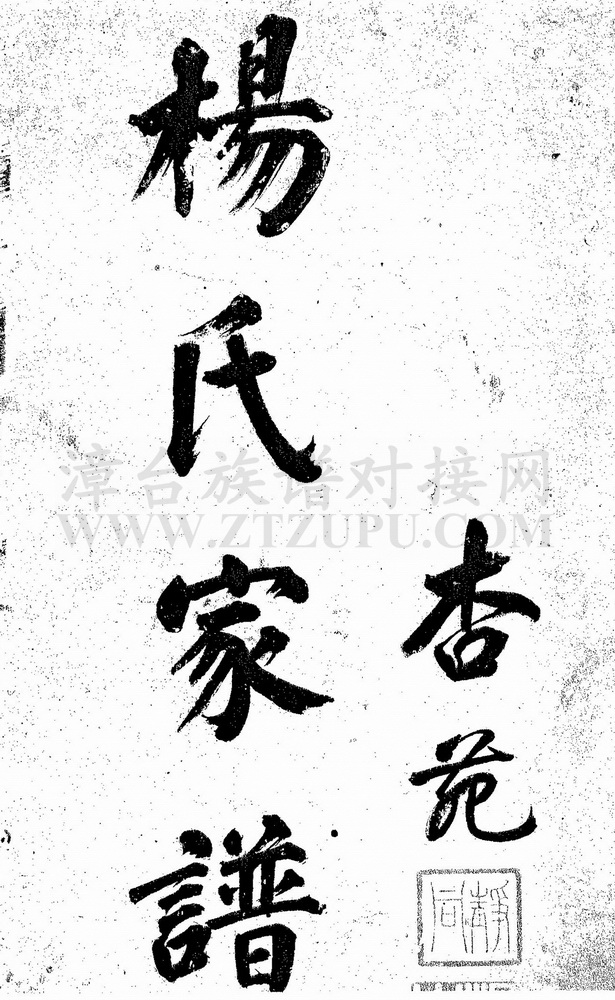 杏苑
楊氏家譜
漳台族谱对接网
WWW.ZTZUPU.COM